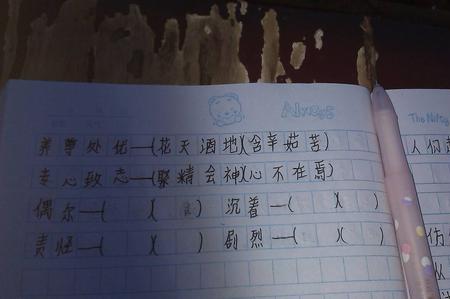 Always
The Nifty
养尊处优—(花天酒地)(含辛茹苦)
专心致志—(聚精会神)(心不在焉)
偶尔—(  )(  ) 沉着—(  )(  )
责怪—(  )(  ) 剧烈—(  )(  )
人们
伤
从